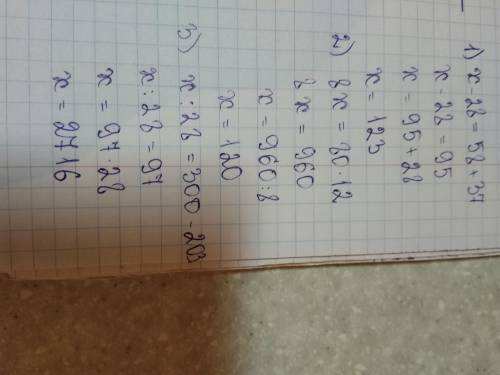 1) x - 28 = 58 + 37
x - 28 = 95
x = 95 + 28
x = 123
2) 8x = 80 · 12
8x = 960
x = 960 : 8
x = 120
3) x : 28 = 300 - 203
x : 28 = 97
x = 97 · 28
x = 2716